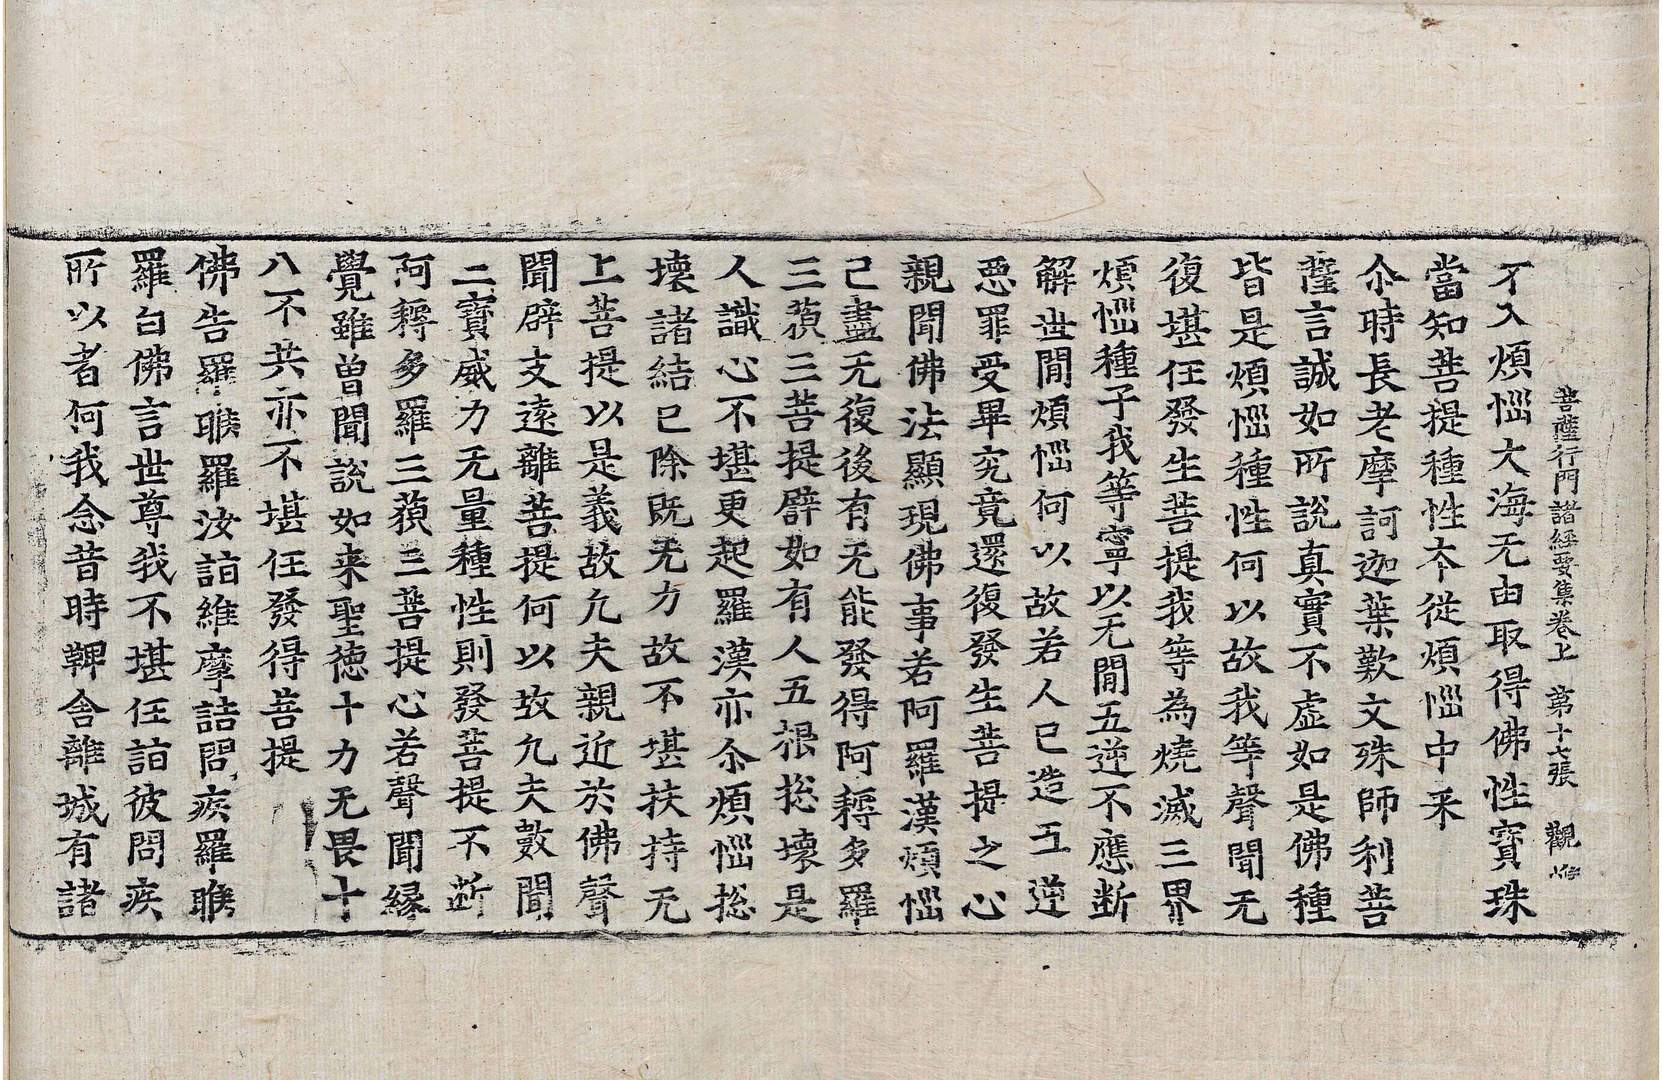 菩薩行門諸經要集卷上 第十七張 觀
不入煩惱大海无由取得佛性寳珠
當知菩提種性夲從煩惱中来
尒時長老摩訶迦葉歎文殊師利菩
薩言誠如所說真實不虛如是佛種
皆是煩惱種性何以故我等聲聞无
復堪任發生菩提我等為燒滅三界
煩惱種子我等寧以无閒五逆不應断
解世閒煩惱何以故若人已造五逆
惡罪受畢究竟還復發生菩提之心
親聞佛法顯現佛事若阿羅漢煩惱
已盡无復後有无能發得阿耨多羅
三藐三菩提譬如有人五根捴壞是
人識心不堪更起羅漢亦尒煩惱捴
壞諸結已除既无力故不堪扶持无
上菩提以是義故凡夫親近於佛聲
聞辟支遠離菩提何以故凡夫數聞
二寳威力无量種性則發菩提不断
阿耨多羅三藐三菩提心若聲聞縁
覺雖曽聞說如来聖德十力无畏十
八不共亦不堪任發得菩提
佛告羅睺羅汝詣維摩詰問疾羅睺
羅白佛言世尊我不堪任詣彼問疾
所以者何我念昔時鞞舍離城有諸